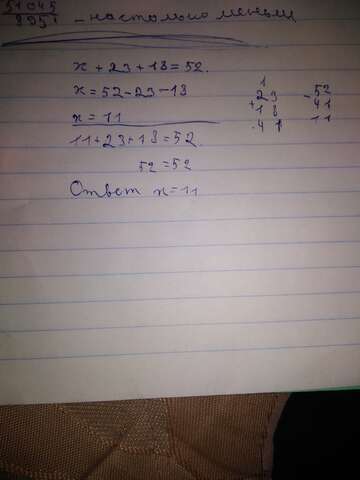 51045
9951 - настолько меньш
x + 23 + 18 = 52.
x = 52 - 23 - 18
x = 11
11 + 23 + 18 = 52.
52 = 52
Ответ x = 11
1
+ 23
18
41
- 52
41
11